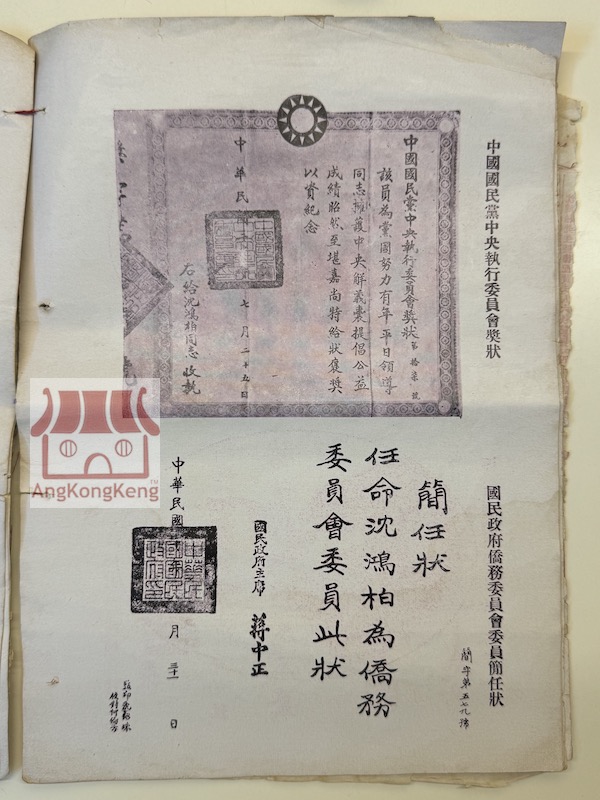 中國國民黨中央執行委員會奬狀
中國國民黨中央執行委員會奬狀
第拾柒號
該員為黨國努力有年平日領導
同志擁護中央解義囊提倡公益
成績昭然至堪嘉尚特給狀褒奬
以資紀念
中華民
七月二十五日
右給沈鴻柏同志收執
國民政府僑務委員會委員簡任狀
簡字第五七九號
簡任狀
任命沈鴻柏為僑務
委員會委員此狀
國民政府主席 蔣中正
中華民國
月 三十一 日
AngKongKeng
TM